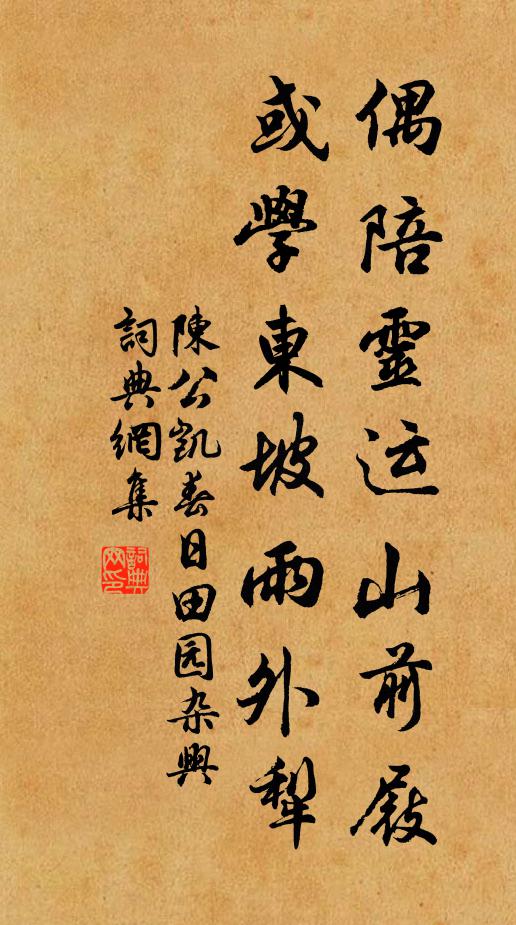 偶陪靈运山前屐
或學東坡雨外犁
陳公凱春日田园杂興
詞典網集
詞典网印